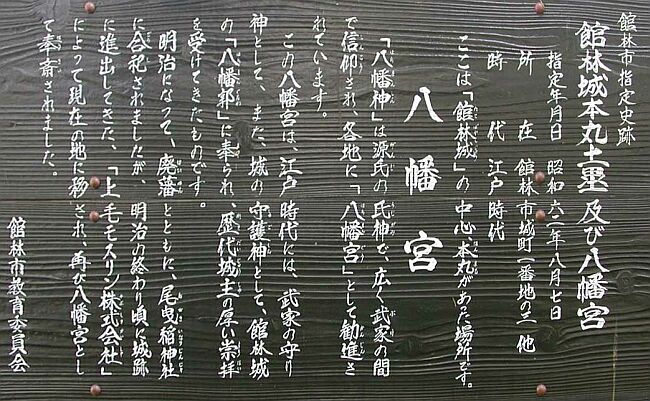 館林市指定史跡
館林城本丸土塁及び八幡宮
指定年月日 昭和六二年八月七日
所在 館林市城町一番地の三 他
時代 江戸時代
ここは「館林城」の中心本丸があた場所です。
八幡宮
「八幡神」は源氏の氏神で、広く武家の間
で信仰され、各地に「八幡宮」として勧進さ
れています。
この八幡宮は、江戸時代には、武家の守り
神として、また、城の守護神として、館林城
の「八幡郭」に奉られ、歴代城主の厚い崇拝
を受けてきたものです。
明治になって、廃藩とともに、尾曳稲神社
に合祀されましたが、明治の終わり頃に城跡
に進出してきた、「上毛モスリン株式会社」
によって現在の地に移され、再び八幡宮とし
て奉斎されました。
館林市教育委員会